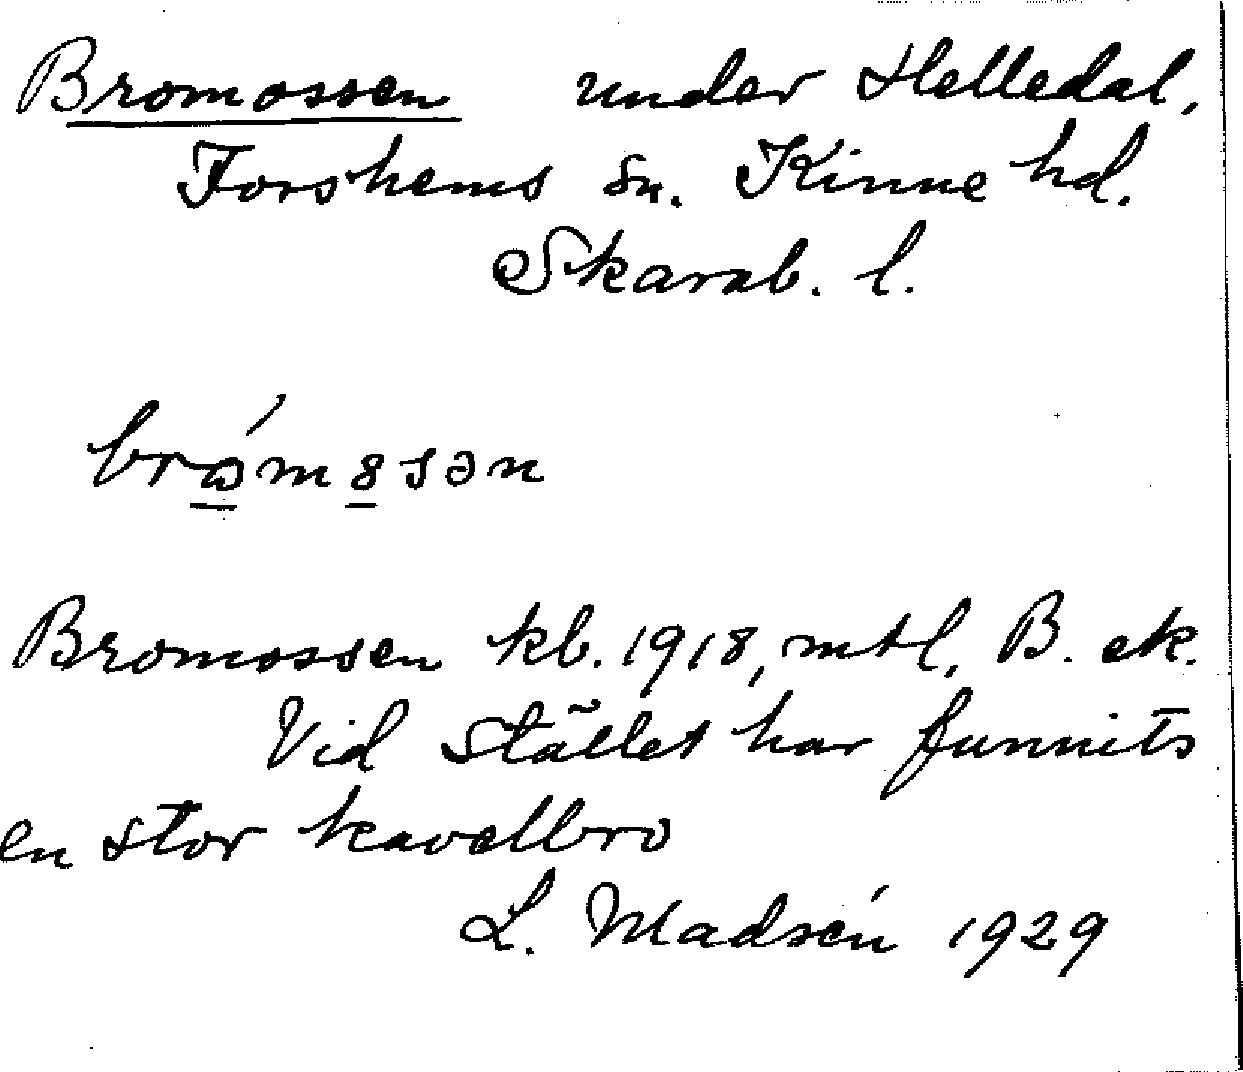 Bromossen under Helledal,
Forshems sn. Kinne hd.
Skarab. l.
Bromossen kb. 1918, mtl, B. ek.
Vid stället har funnits
en stor kavelbro
L. Madsén 1929